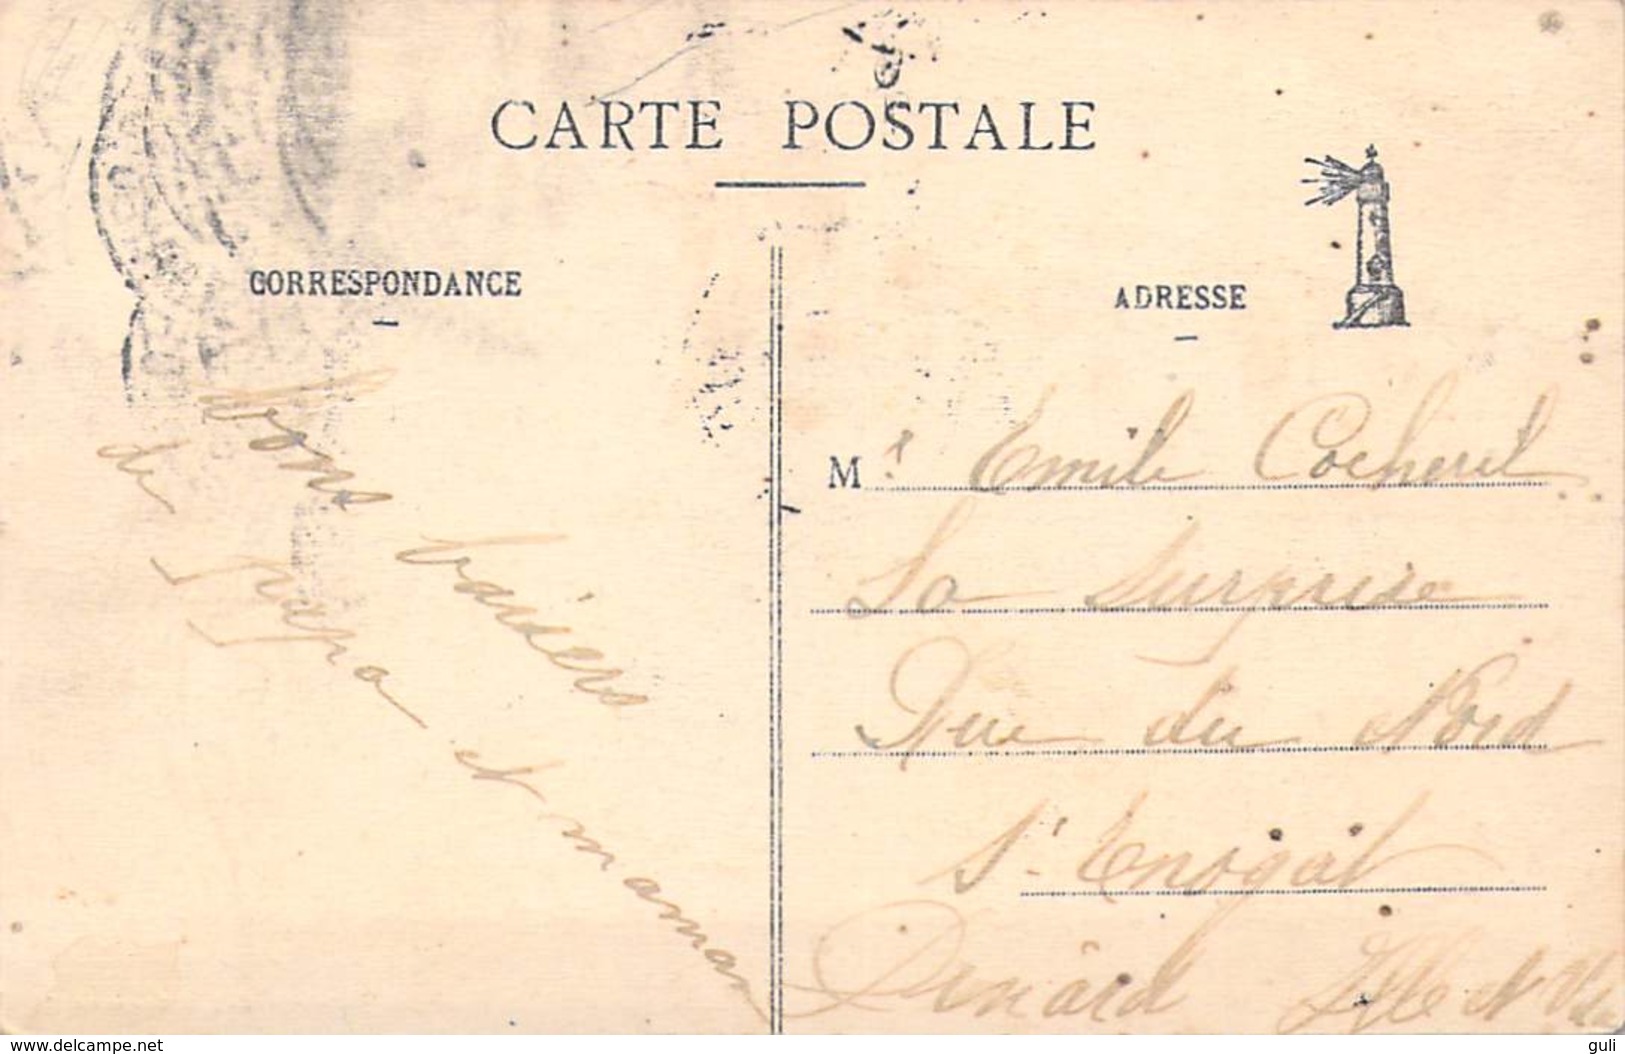 CARTE POSTALE
CORRESPONDANCE
bons baisers
de papa et maman
ADRESSE
Mr Emile Cocherel
La Surprise
Rue du Nord
St Enogat
Dinard Ille et Vil
www.delcampe.net
guli